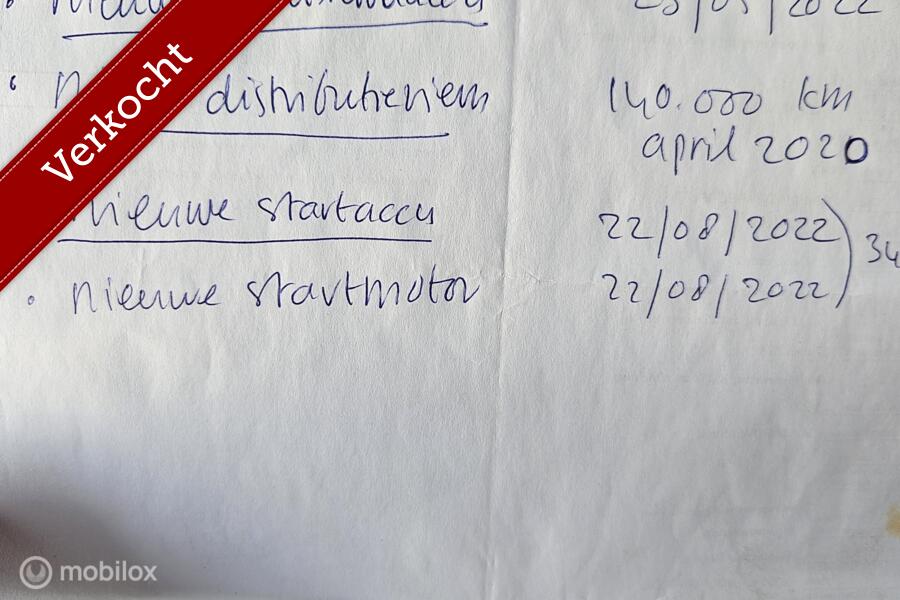 23/05/2022
distributieriem 140.000 km
april 2020
nieuwe startaccu 22/08/2022
34
nieuwe startmotor 22/08/2022
Verkocht
mobilox